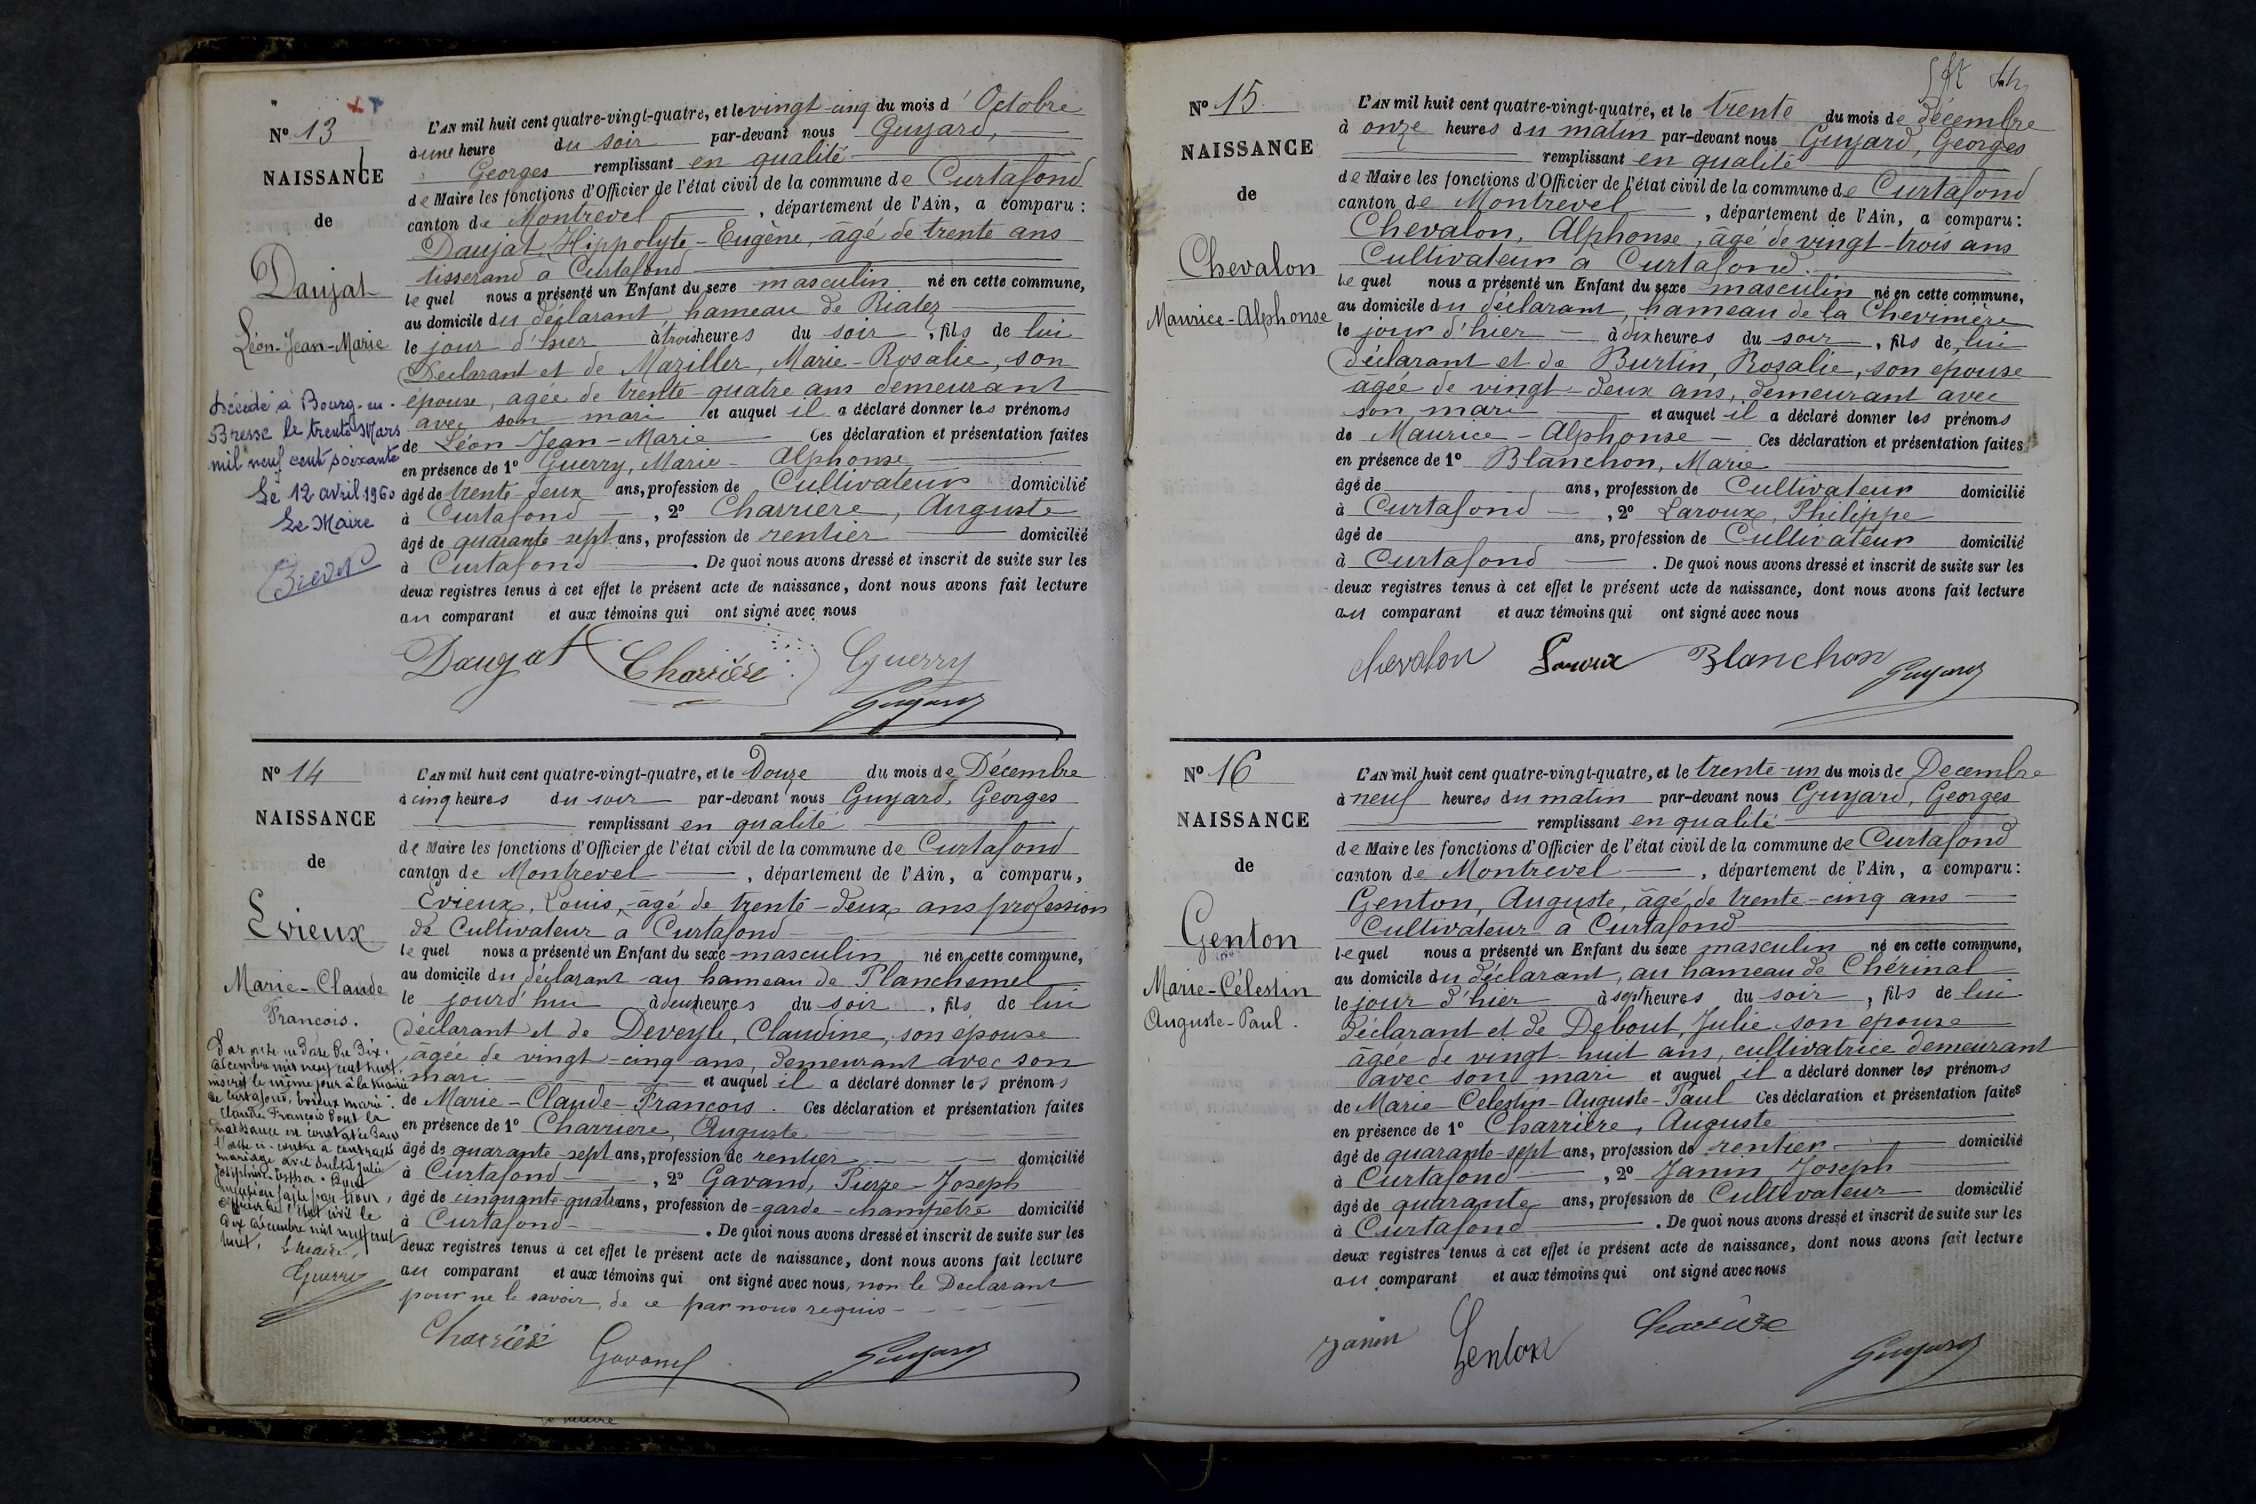 N° 13
NAISSANCE
de
Daujat
Léon-Jean-Marie
Décédé à Bourg-en-
Bresse le trente Mars
mil neuf cent soixante
Le 12 avril 1960
Le Maire
L'AN mil huit cent quatre-vingt-quatre, et le vingt-cinq du mois d'Octobre
à une heure du soir par-devant nous Guyard,
Georges remplissant en qualité
de Maire les fonctions d'Officier de l'état civil de la commune de Curtafond
canton de Montrevel, département de l'Ain, a comparu:
Daujat, Hippolyte-Eugène, âgé de trente ans
tisserand à Curtafond
lequel nous a présenté un Enfant du sexe masculin né en cette commune,
au domicile du déclarant hameau de Riatez
le jour d'hier à trois heures du soir, fils de lui
Déclarant et de Maziller, Marie-Rosalie, son
épouse, agée de trente-quatre ans demeurant
avec son mari et auquel il a déclaré donner les prénoms
de Léon Jean-Marie Ces déclaration et présentation faites
en présence de 1° Guerry, Marie-Alphonse
âgé de trente-deux ans, profession de Cultivateur domicilié
à Curtafond, 2° Charriere, Auguste
âgé de quarante-sept ans, profession de rentier domicilié
à Curtafond. De quoi nous avons dressé et inscrit de suite sur les
deux registres tenus à cet effet le présent acte de naissance, dont nous avons fait lecture
au comparant et aux témoins qui ont signé avec nous
Daujat Charrière Guerry
Guyard
N° 14
NAISSANCE
de
Evieux
Marie-Claude
François.
Par acte en date du dix
décembre mil neuf cent huit,
inscrit le même jour à la mairie
de Curtafond, Evieux Marie
Claude François dont la
naissance est constatée dans
l'acte ci-contre a contracté
mariage avec
Joséphine
mention faite par nous,
officier de l'état civil le
dix décembre mil neuf cent
huit,
Le Maire,
Guerry
L'AN mil huit cent quatre-vingt-quatre, et le Douze du mois de Décembre
à cinq heures du soir par-devant nous Guyard, Georges
remplissant en qualité
de Maire les fonctions d'Officier de l'état civil de la commune de Curtafond
canton de Montrevel, département de l'Ain, a comparu,
Evieux, Louis, âgé de trente-deux ans profession
de Cultivateur à Curtafond
lequel nous a présenté un Enfant du sexe masculin né en cette commune,
au domicile du déclarant au hameau de Planchemel
le jourd'hui à deux heures du soir, fils de lui
déclarant et de Deveyle, Claudine, son épouse
âgée de vingt-cinq ans, demeurant avec son
mari et auquel il a déclaré donner les prénoms
de Marie-Claude-François. Ces déclaration et présentation faites
en présence de 1° Charriere, Auguste
âgé de quarante-sept ans, profession de rentier domicilié
à Curtafond, 2° Gavand, Pierre-Joseph
âgé de cinquante-quatre ans, profession de garde-champêtre domicilié
à Curtafond. De quoi nous avons dressé et inscrit de suite sur les
deux registres tenus à cet effet le présent acte de naissance, dont nous avons fait lecture
au comparant et aux témoins qui ont signé avec nous, non le Declarant
pour ne le savoir, de ce par nous requis
Charrière Gavand Guyard
N° 15
NAISSANCE
de
Chevalon
Maurice-Alphonse
L'AN mil huit cent quatre-vingt-quatre, et le trente du mois de décembre
à onze heures du matin par-devant nous Guyard, Georges
remplissant en qualité
de Maire les fonctions d'Officier de l'état civil de la commune de Curtafond
canton de Montrevel, département de l'Ain, a comparu:
Chevalon, Alphonse, âgé de vingt-trois ans
Cultivateur à Curtafond.
lequel nous a présenté un Enfant du sexe masculin né en cette commune,
au domicile du déclarant, hameau de la Chevrinière
le jour d'hier à dix heures du soir, fils de lui
déclarant et de Burtin, Rosalie, son épouse
agée de vingt-deux ans, demeurant avec
son mari et auquel il a déclaré donner les prénoms
de Maurice-Alphonse Ces déclaration et présentation faites
en présence de 1° Blanchon, Marie
âgé de ans, profession de Cultivateur domicilié
à Curtafond, 2° Laroux, Philippe
âgé de ans, profession de Cultivateur domicilié
à Curtafond. De quoi nous avons dressé et inscrit de suite sur les
deux registres tenus à cet effet le présent acte de naissance, dont nous avons fait lecture
au comparant et aux témoins qui ont signé avec nous
Chevalon Laroux Blanchon
Guyard
N° 16
NAISSANCE
de
Genton
Marie-Célestin
Auguste-Paul.
L'AN mil huit cent quatre-vingt-quatre, et le trente-un du mois de Decembre
à neuf heures du matin par-devant nous Guyard, Georges
remplissant en qualité
de Maire les fonctions d'Officier de l'état civil de la commune de Curtafond
canton de Montrevel, département de l'Ain, a comparu:
Genton, Auguste, âgé de trente-cinq ans
Cultivateur à Curtafond
lequel nous a présenté un Enfant du sexe masculin né en cette commune,
au domicile du déclarant, au hameau de Chérinal
le jour d'hier à sept heures du soir, fils de lui
déclarant et de Debout, Julie son épouse
âgée de vingt-huit ans, cultivatrice demeurant
avec son mari et auquel il a déclaré donner les prénoms
de Marie-Celestin-Auguste-Paul Ces déclaration et présentation faites
en présence de 1° Charrière, Auguste
âgé de quarante-sept ans, profession de rentier domicilié
à Curtafond, 2° Janin Joseph
âgé de quarante ans, profession de Cultivateur domicilié
à Curtafond. De quoi nous avons dressé et inscrit de suite sur les
deux registres tenus à cet effet le présent acte de naissance, dont nous avons fait lecture
au comparant et aux témoins qui ont signé avec nous
Janin Genton Charrière
Guyard